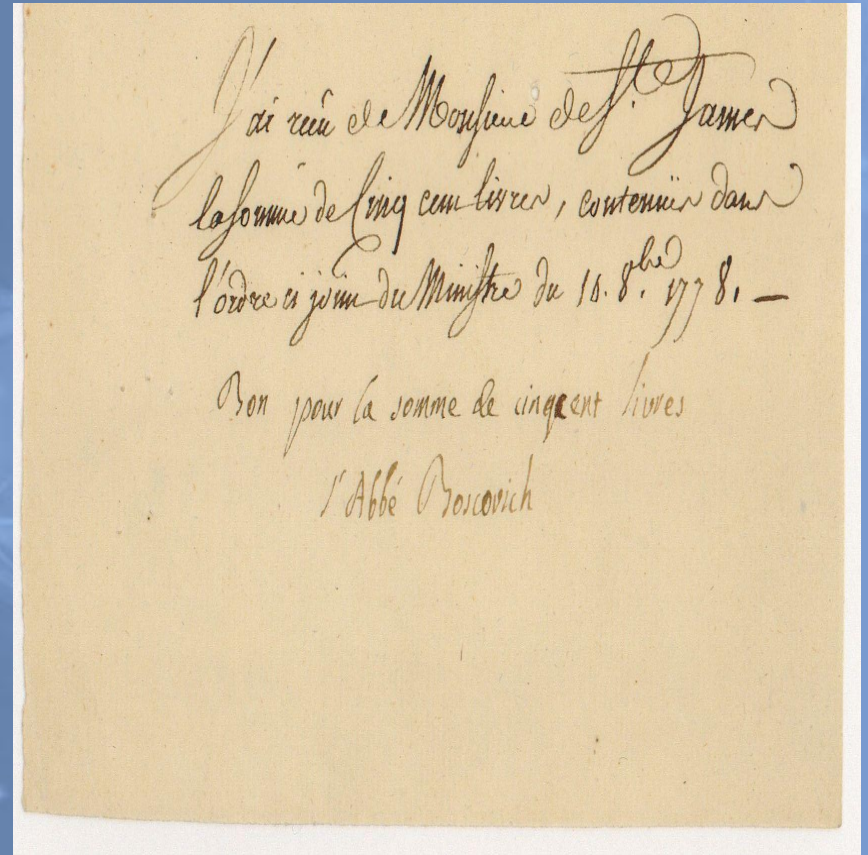 J'ai reçû de Monsieur de S.te James
la somme de Cinq cent livres, contenües dans
l'ordre ci joint du Ministre du 10. 8.bre 1778. —
Bon pour la somme de cinqcent livres
l'Abbé Boscovich